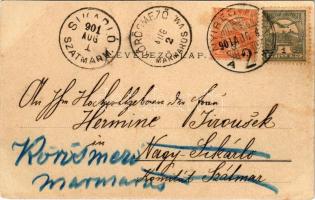 SIKÁRLÓ
901
AUG
1
SZATMÁRM.
KŐRÖSMEZŐ
AUG
2
MÁRMAROS M.
LEVELEZŐ LAP
An Ihr Hochwohlgeboren der Frau
Hermine Jiroušek
in
Nagy-Sikárló
Komitat Szatmár
Körösmezö
Marmaros